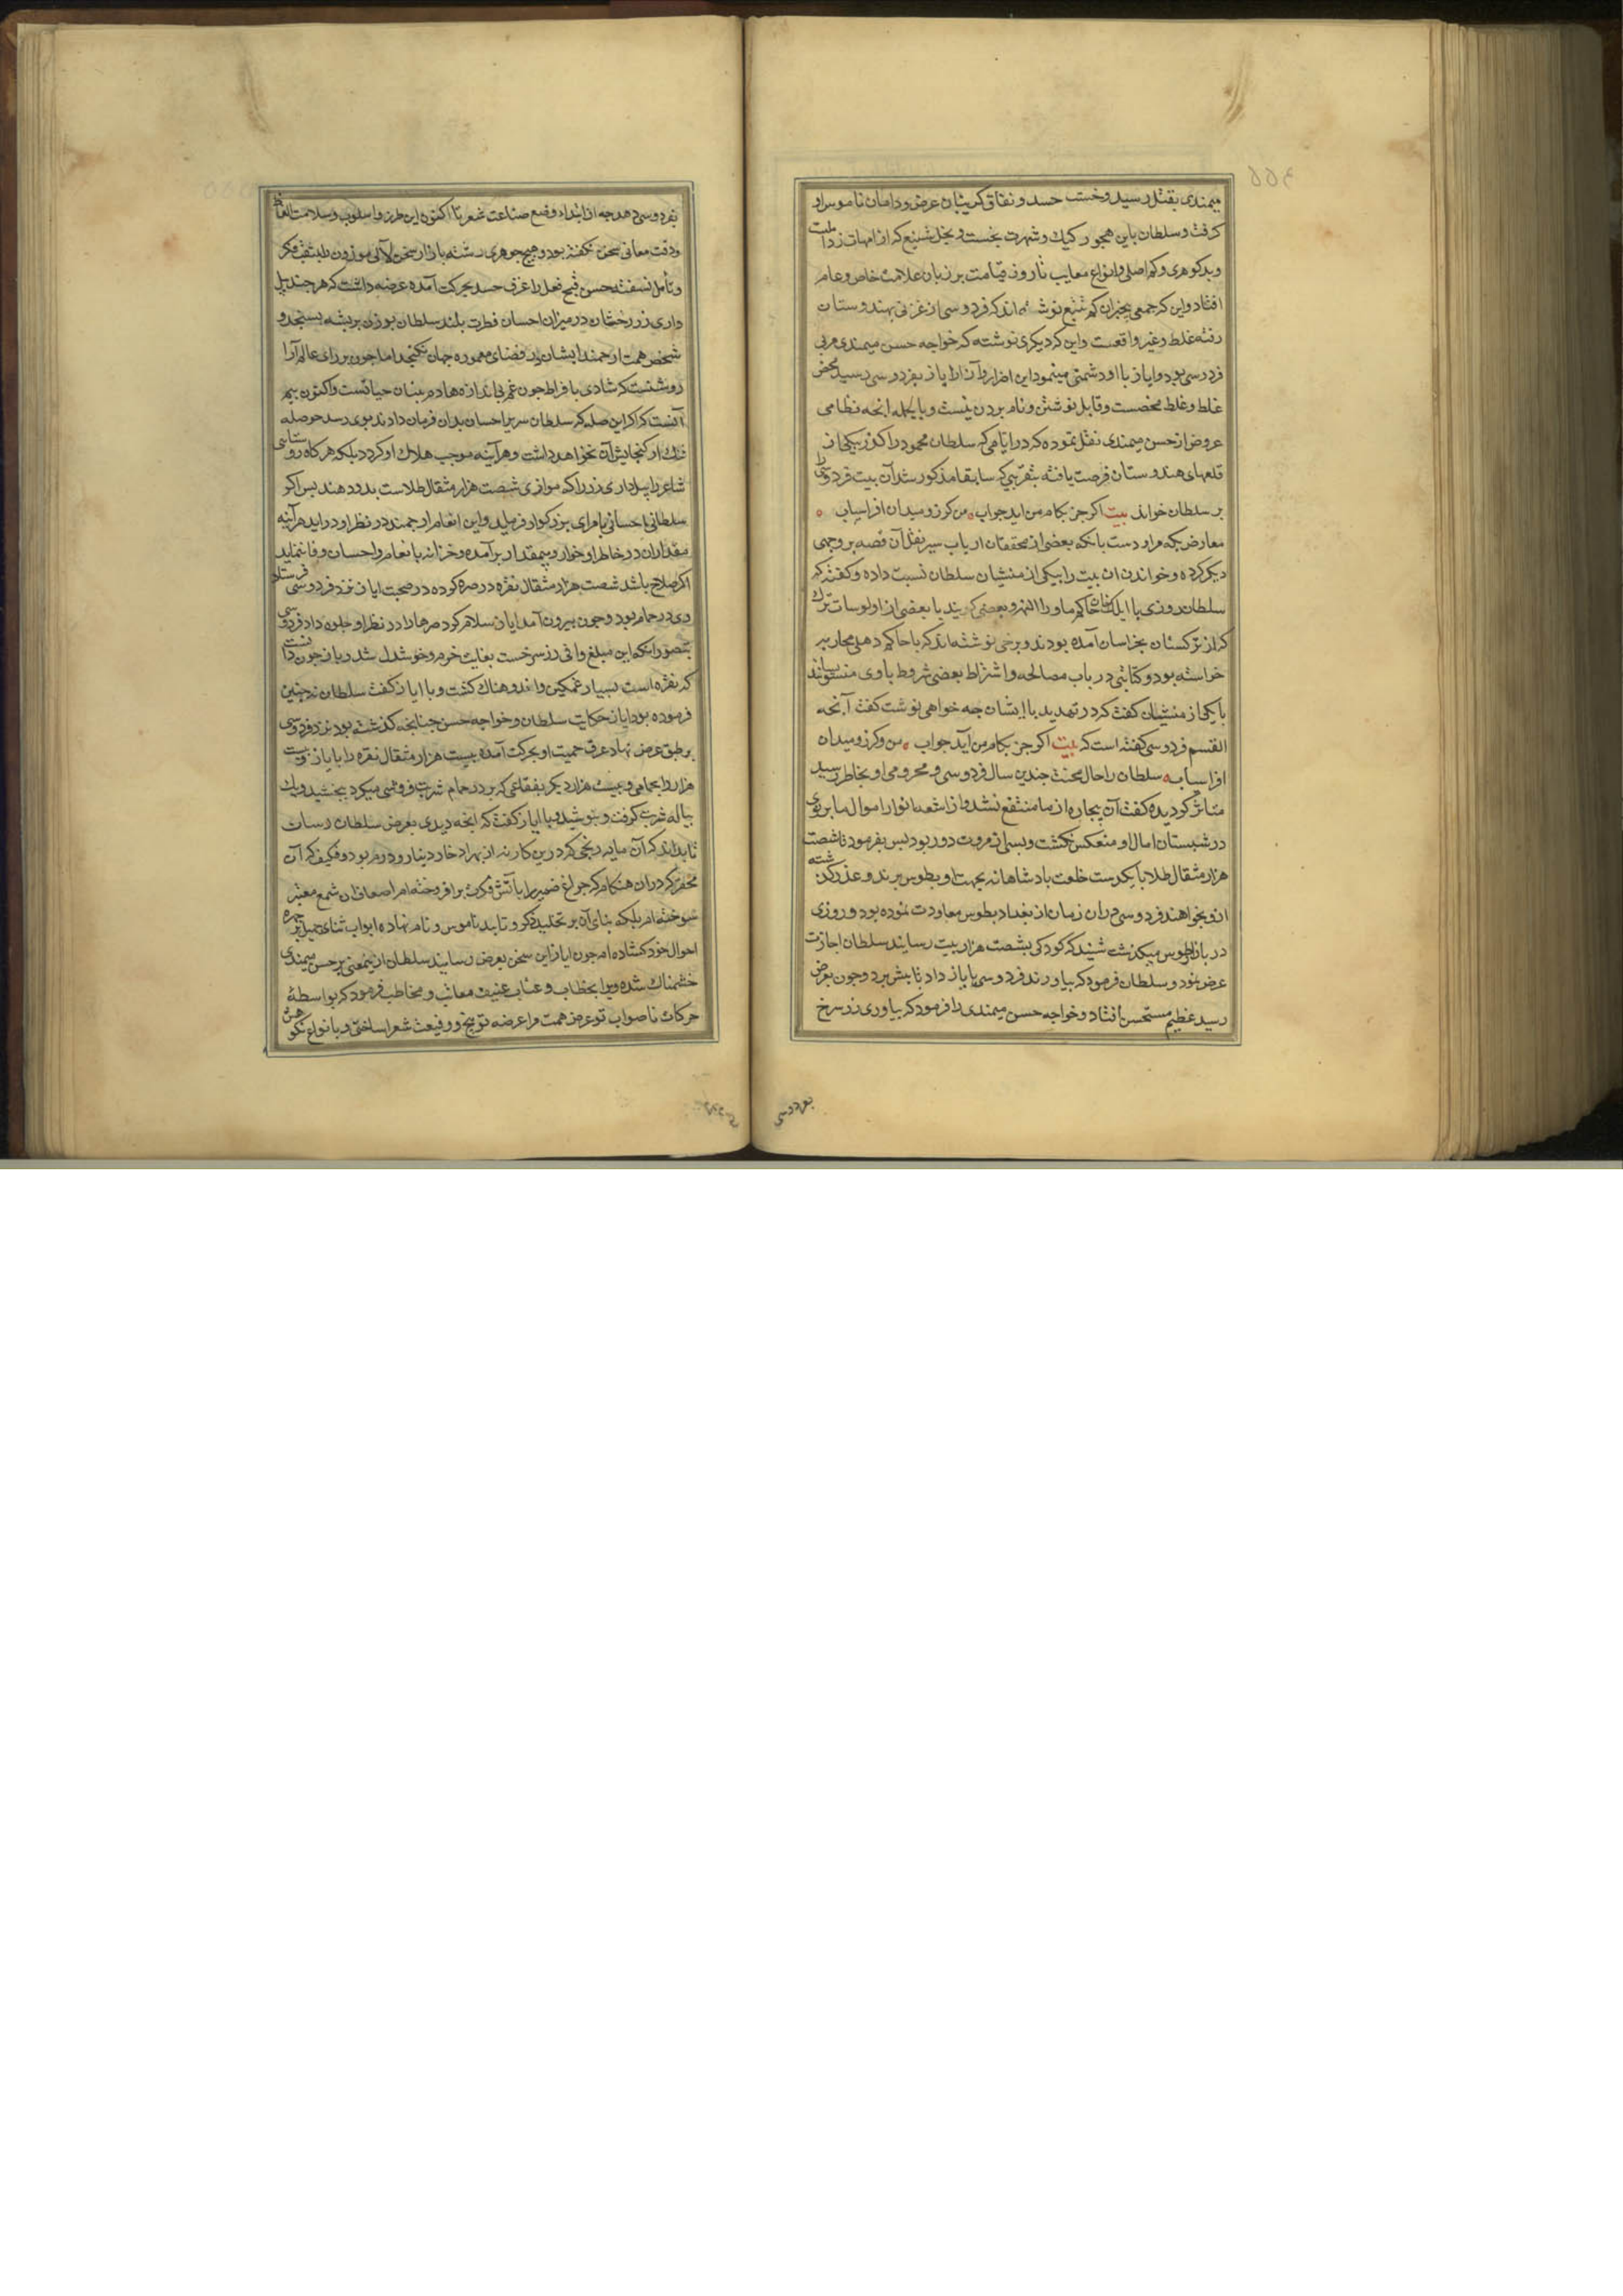 میمندی بقتل رسید و خست حسد و نفاق گریبان عرض و دامان ناموس او
گرفت و سلطان باین هجو رکیک و شهرت بخست و بخل شنیع که از امهات زد است
و بد گوهری و کم اصلی و انواع معایب تا روز قیامت بر زبان علامت خاص و عام
افتاد و این که جمعی بیخبران کم تتبع نوشته اند که فردوسی از غزنی بهندوستان
رفته غلط و غیر واقعست و این که دیگری نوشته که خواجه حسن میمندی مربی
فردوسی بود و ایاز با او دشمنی مینمود این اضرار از ایاز بفردوسی رسید محض
غلط و غلط محضست و قابل نوشتن و نام بردن نیست و بالجمله انچه نظامی
عروض از حسن میمندی نقل نموده که در ایامی که سلطان محمود را کوز بیکی از
قلعهای هندوستان فرصت یافته بتقریبی که سابقا مذکور شد آن بیت فردوسی را
بر سلطان خواند بیت اگر جز بکام من اید جواب من و گرز و میدان افراسیاب
معارض بگه مرار دست بانکه بعضی از محققان ارباب سیر نقل آن قصه بر وجهی
دیگر کرده و خواندن ان بیت را بیکی از منشیان سلطان نسبت داده و گفته که
سلطان روزی با ایلک خان حاکم ماورا النهر و بعضی گویند با بعضی از اولوسات ترک
که از ترکستان بخراسان آمده بودند و برخی نوشته اند که با حاکم دهلی محاربه
خواسته بود و کتابتی در باب مصالحه و اشتراط بعضی شروط باوی
با یکی از منشیان گفت که در تهدید با ایشان چه خواهی نوشت گفت آنچه
القسم فردوسی گفته است که بیت اگر جز بکام من آید جواب من و گرز و میدان
افراسیاب سلطان را حال محنت چندین سال فردوسی و محرومی او بخاطر رسید
متاثر گردیده گفت آن بیچاره از ما منتفع نشد و از اشعه انوار اموال ما پرتوی
در شبستان امال او منعکس نگشت و بسی از مروت دور بود پس بفرمود تا شصت
هزار مثقال طلا با یکدست خلعت پادشاهانه بجهت او بطوس برند و عذر گذشته
ازو بخواهند فردوسی دران زمان از بغداد بطوس معاودت نموده بود و روزی
در بازار طوس میگذشت شنید که کودکی بشصت هزار بیت رسایند سلطان اجازت
عرض نمود و سلطان فرمود که بیاورند فردوسی بایاز داد تا پیش برد و چون بعرض
رسید عظیم مستحسن افتاد و خواجه حسن میمندی را فرمود که بیاوری زر سرخ
بفردوسی
بفردوسی دهد چه از ابتداء وضع صناعت شعر تا اکنون این طرز و اسلوب و سلامت الفاظ
و دقت معانی سخن نگفته بود و هیچ جوهری رشته بازار سخن لآلی موزون را بمثقب فکر
و تأمل نسفته حسن قبیح فعل را عرق حسد بحرکت آمده عرضه داشت که هر چند پیل
داری زر رخشان در میزان احسان فطرت بلند سلطان بوزن پر پشه بسنجد و
شخص همت ارجمند ایشان در فضای معموره جهان نگنجد اما چون بر رای عالم آرا
روشنست که شادی با فراط چون غم بی اندازه هادم بنیان حیاتست و اکنون بیم
آنست که اگر این صله که سلطان سریر احسان بدان فرمان دادند بوی رسد حوصله
تنک او گنجایش آن نخواهد داشت و هر آینه موجب هلاک او گردد بلکه هر گاه روستایی
شاعر را پیلداری زر را که موازی شصت هزار مثقال طلاست بدو دهند پس اگر
سلطانی با حسانی با مرای بزرگوار فرماید و این انعام ارجمند در نظر او در اید هر آینه
مقدار ان در خاطر او خوار و بیمقدار بر آمده و خزانه با نعام و احسان وفا ننماید
اگر صلاح باشد شصت هزار مثقال نقره در صره کرده در صحبت ایاز نزد فردوسی فرستاد
وی در حمام بود و چون بیرون آمد ایاز سلام کرد صرها را در نظر او جلوه داد فردوسی
بتصور اینکه این مبلغ وافی زر سرخست بغایت خرم و خوشدل شد باز چون دانست
که نقره است بسیار غمگین و اندوهناک گشت و با ایاز گفت سلطان نه چنین
فرموده بود ایاز حکایت سلطان و خواجه حسن چنانچه گذشته بود نزد فردوسی
بر طبق عرض نهاد عرق حمیت او بحرکت آمده بیست هزار مثقال نقره را بایاز و بیست
هزار را بحمامی و بیست هزار دیگر بفقاعی که بر در حمام شربت فروشی میکرد ببخشید و یک
پیاله شربت گرفت و بنوشید و با ایاز گفت که انچه دیدی بعرض سلطان رسان
تا بداند که آن مایه رنجی که درین کار نه از بهر ادخار دینار و درم بود و فکیف که آن
محقر که دران هنگام که چراغ ضمیر را بآتش فکرت بر افروخته ام اضعاف ان شمع معنبر
سوخته ام بلکه بنای آن بر تخلید ذکر و تایید ناموس و نام نهاده ابواب ثنای جمیل بر چهره
احوال خود گشاده ام چون ایاز این سخن بعرض رسانید سلطان ازینمعنی بر حسن میمندی
خشمناک شده ویرا بخطاب و عتاب عنیف معاتب و مخاطب فرمود که بواسطهٔ
حرکات ناصواب تو عرض همت مرا عرضه توبیخ و وقیعت شعرا ساختی و بانواع نکوهش